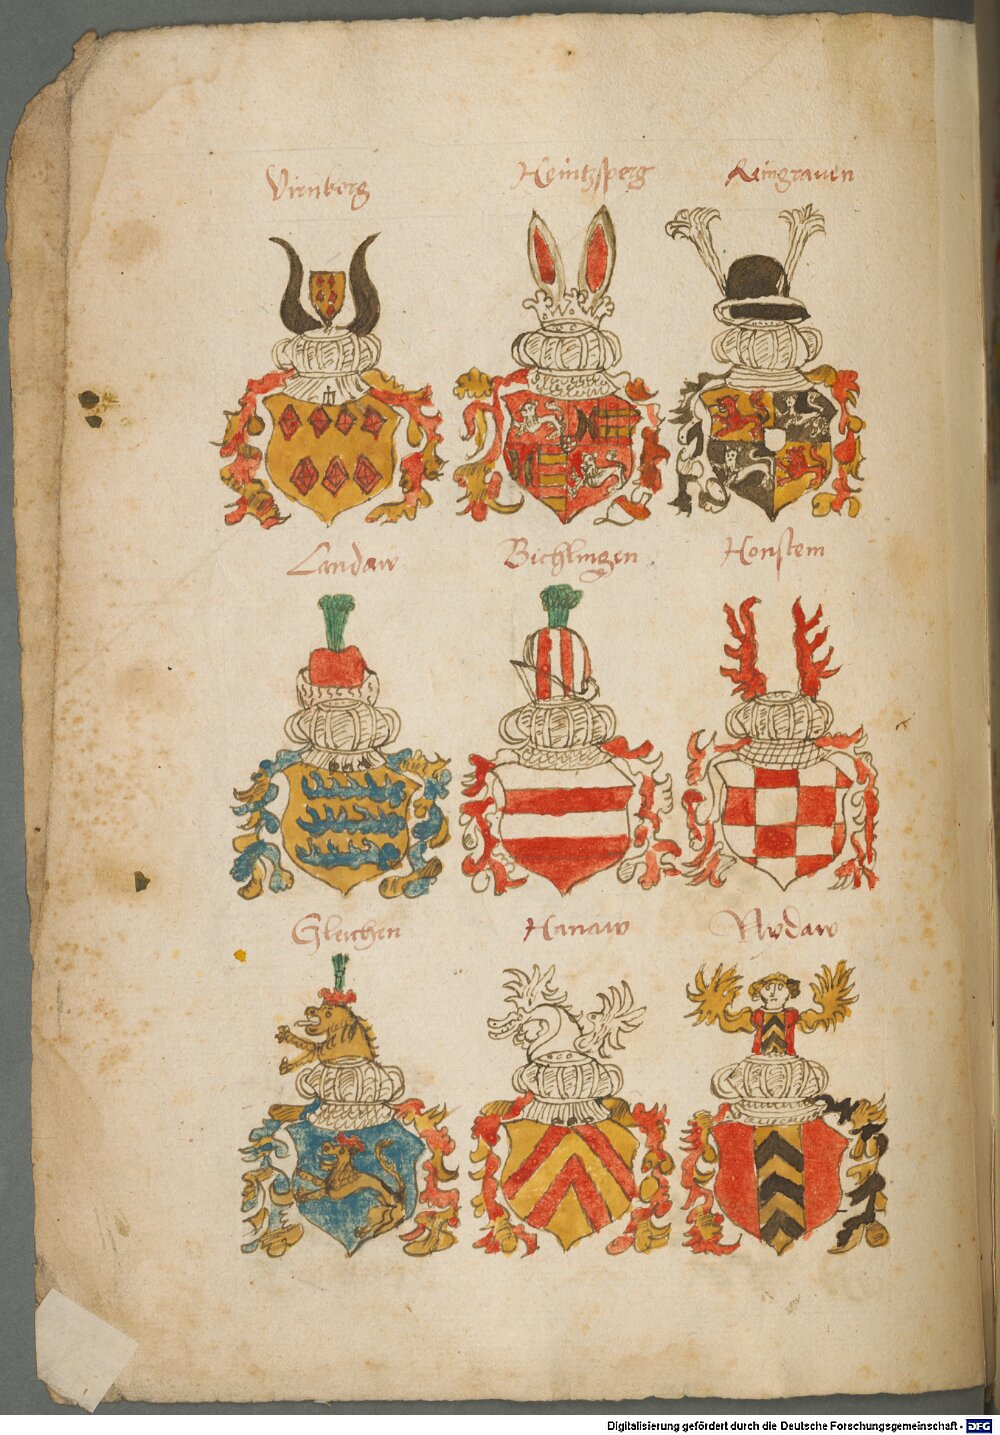 Virnberg Heintzsperg Reingrauen
Landaw Bichlingen Honstein
Gleichen Hanaw Nydaw
Digitalisierung gefördert durch die Deutsche Forschungsgemeinschaft - DFG